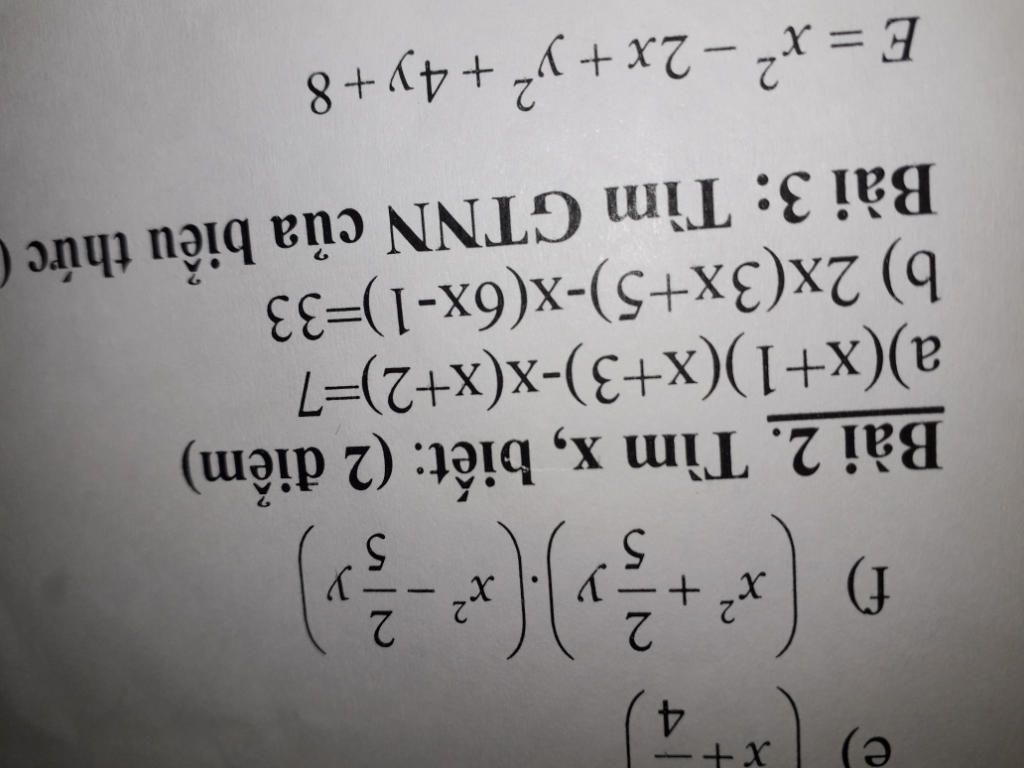 e) (x + — 4)
f) (x² + 2/5 y).(x² − 2/5 y)
Bài 2. Tìm x, biết: (2 điểm)
a)(x+1)(x+3)-x(x+2)=7
b) 2x(3x+5)-x(6x-1)=33
Bài 3: Tìm GTNN của biểu thức (
E = x² − 2x + y² + 4y + 8